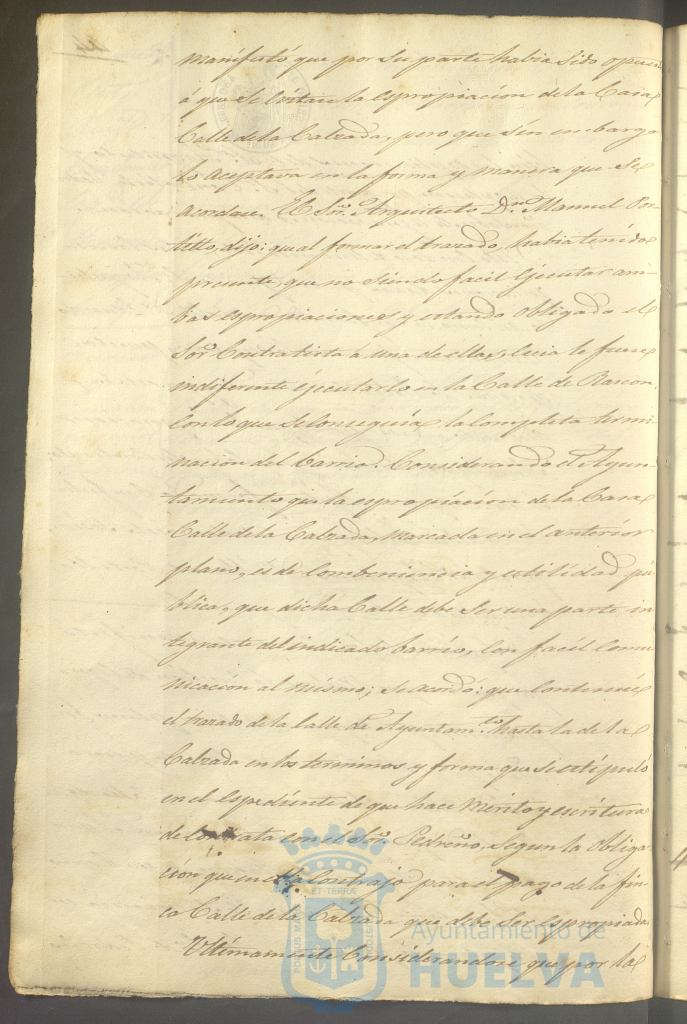 manifestó que por su parte habia sido opues
á que se évitase la espropiacion de la Casa
Calle de la Calzada, pero que sin en-bargo
lo aceptava en la forma y manera que se
acordase. El Sor. Arquitecto Dn. Manuel Por-
tillo, dijo: qu al formar el trazado, habia tenido
presente, que no siendo facil éjecutar am-
bas espropiaciones y estando obligado el
Sor. Contratista a una de ellas, le fuese
indiferente éjecutarlo en la Calle de Rascon
con lo que se conseguia la completa termi-
nacion del barrio. Considerando el Ayun-
tamiento que la espropiacion de la Casa
Calle de la Calzada, marcada en el anterior
plano, és de combeniencia y utilidad pú
blica, que dicha Calle debe ser una parte in
tegrante del indicado barrio, con facil comu
nicacion al mismo; se acordó: que continúe
el trazado de la calle de Ayuntamto. hasta la de la
Calzada en los terminos y forma que se estipuló
en el espediente de que hace mérito y escritura
de contrata con el Sor. Pedreño, segun la obliga-
ción que en ella contrajo para el pago de la fin
ca Calle de la Calzada que debe ser espropiada
Ultimamente considerandose que por la
Ayuntamiento de
HUELVA